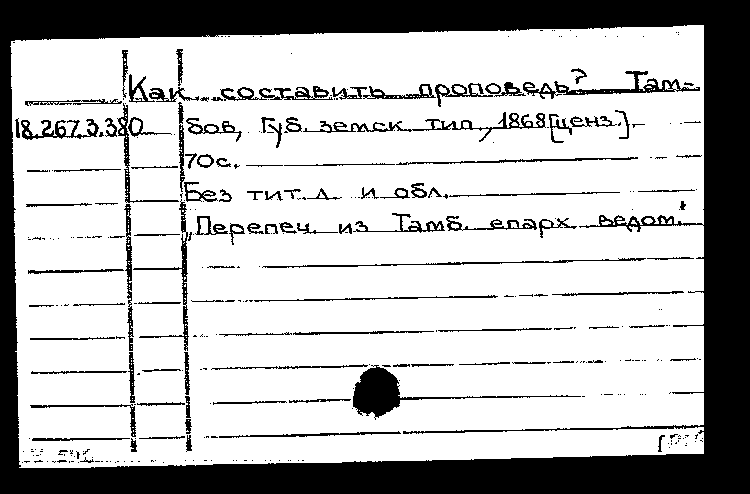 Как составить проповедь? Там-
18.267.3.380 бов, Губ. земск. тип., 1868 [ценз.].
70 с.
Без тит. л. и обл.
„Перепеч. из Тамб. епарх. ведом."